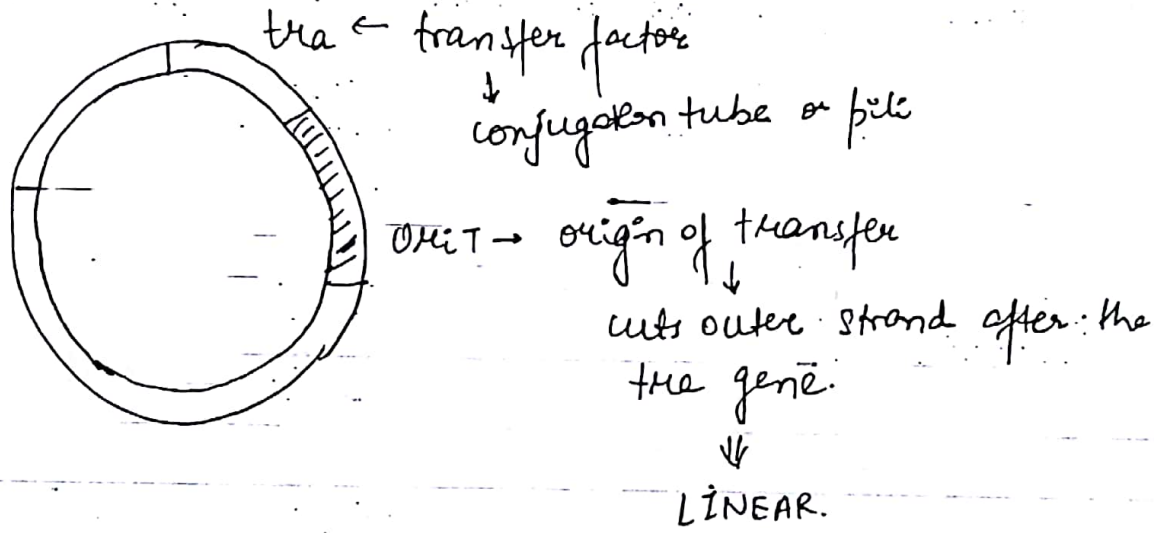 tra ← transfer factor
↓
conjugation tube or pili
OriT → origin of transfer
↓
cuts outer strand after the
tra gene.
⇓
LINEAR.